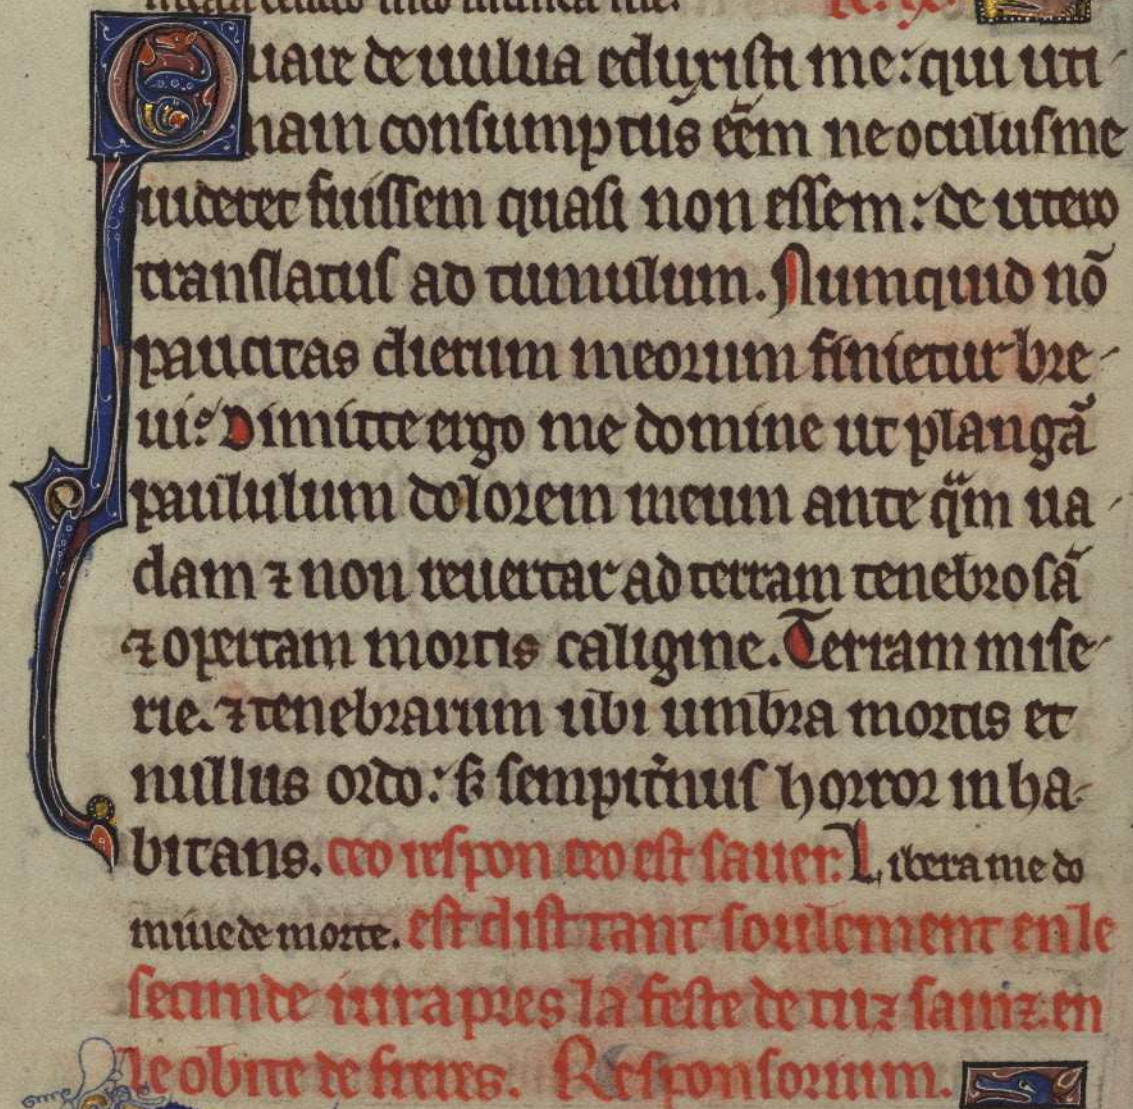 meam cenito meo munda me. le. ix.
Quare de uulua eduxisti me: qui uti
nam consumptus eēm ne oculus me
uideret fuissem quasi non essem: de utero
translatus ad tumulum. Numquid nō
paucitas dierum meorum finietur bre
ui: Dimitte ergo me domine ut plangā
paululum dolorem meum ante q̄m ua
dam ⁊ non reuertar ad terram tenebrosā
⁊ opertam mortis caligine. Terram mise
rie. ⁊ tenebrarum ubi umbra mortis et
nullus ordo: sꝫ sempit̄nus horror inha
bitans. ceo respon ceo est sauer: Libera me do
mine de morte. est dist tant soulement en le
secunde iur apres la feste de tuz sainz. en
le obite de freres. Responsorium.